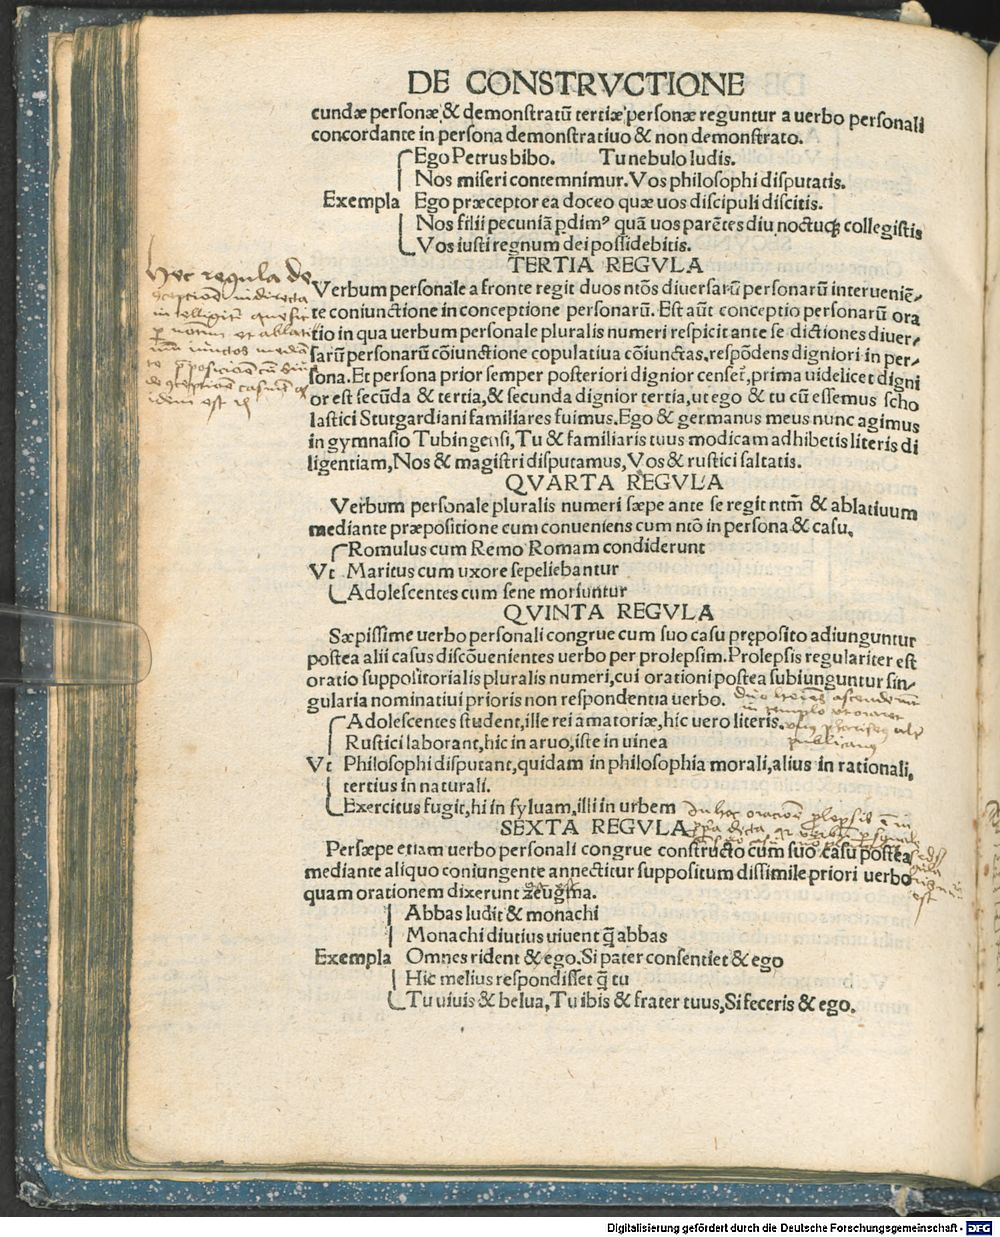 DE CONSTRVCTIONE
cundæ personæ, & demonstratũ tertiæ personæ reguntur a uerbo personali
concordante in persona demonstratiuo & non demonstrato.
Ego Petrus bibo. Tu nebulo ludis.
Nos miseri contemnimur. Vos philosophi disputatis.
Exempla Ego præceptor ea doceo quæ uos discipuli discitis.
Nos filii pecuniã pdimꝰ quã uos parẽtes diu noctuqꝫ collegistis
Vos iusti regnum dei possidebitis.
TERTIA REGVLA
Verbum personale a fronte regit duos ntõs diuersarũ personarũ interueniẽ-
te coniunctione in conceptione personarũ. Est aũt conceptio personarũ ora
tio in qua uerbum personale pluralis numeri respicit ante se dictiones diuer-
sarũ personarũ cõiunctione copulatiua cõiunctas, respõdens digniori in per-
sona. Et persona prior semper posteriori dignior censet, prima uidelicet digni
or est secũda & tertia, & secunda dignior tertia, ut ego & tu cũ essemus scho
lastici Stutgardiani familiares fuimus. Ego & germanus meus nunc agimus
in gymnasio Tubingensi, Tu & familiaris tuus modicam adhibetis literis di
ligentiam, Nos & magistri disputamus, Vos & rustici saltatis.
Hec regula de
QVARTA REGVLA
Verbum personale pluralis numeri sæpe ante se regit ntm̃ & ablatiuum
mediante præpositione cum conueniens cum ntõ in persona & casu.
Romulus cum Remo Romam condiderunt
Vt Maritus cum uxore sepeliebantur
Adolescentes cum sene moriuntur
QVINTA REGVLA
Sæpissime uerbo personali congrue cum suo casu pręposito adiunguntur
postea alii casus discõuenientes uerbo per prolepsim. Prolepsis regulariter est
oratio suppositorialis pluralis numeri, cui orationi postea subiunguntur sin-
gularia nominatiui prioris non respondentia uerbo.
Adolescentes student, ille rei amatoriæ, hic uero literis.
Rustici laborant, hic in aruo, iste in uinea
Vt Philosophi disputant, quidam in philosophia morali, alius in rationali,
tertius in naturali.
Exercitus fugit, hi in syluam, illi in urbem
SEXTA REGVLA
Persæpe etiam uerbo personali congrue constructo cum suo casu postea
mediante aliquo coniungente annectitur suppositum dissimile priori uerbo
quam orationem dixerunt zeugma.
Abbas ludit & monachi
Monachi diutius uiuent q̃ abbas
Exempla Omnes rident & ego. Si pater consentiet & ego
Hic melius respondisset q̃ tu
Tu uiuis & belua, Tu ibis & frater tuus, Si feceris & ego.
Digitalisierung gefördert durch die Deutsche Forschungsgemeinschaft - DFG